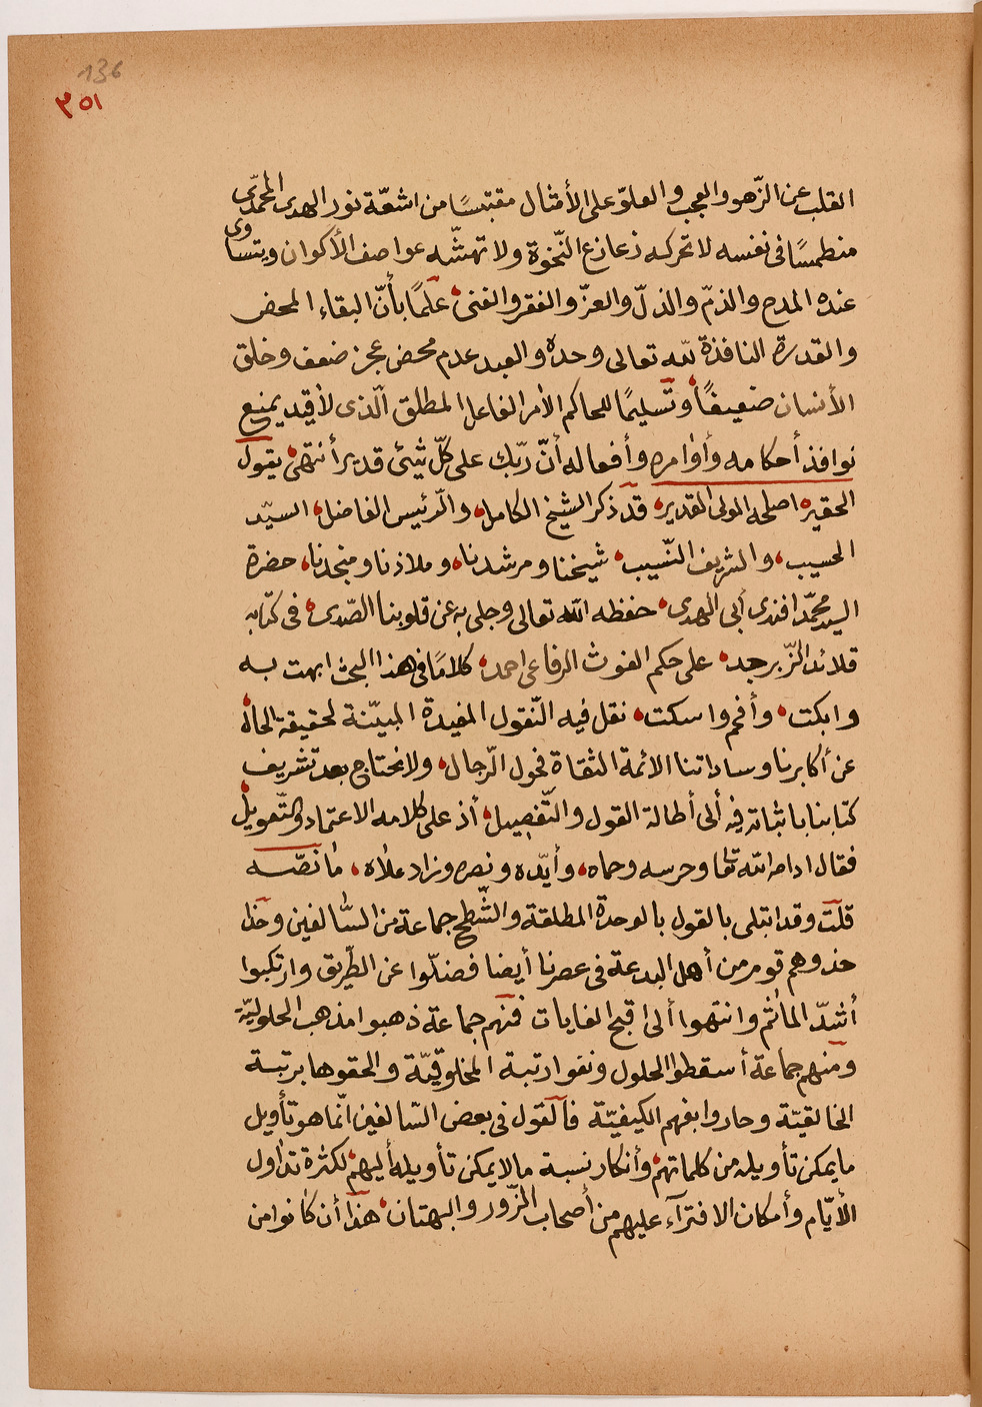 136
٣٥١
القلب عن الزّهو والعجب والعلوّ على الأمثال مقتبسًا من اشعّة نور الهدى المحمّدى
منطمسًا فى نفسه لا تحركه زعازع النّخوة ولا تهشّمه عواصف الأكوان ويتساوى
عنده المدح والذمّ والذلّ والعزّ والفقر والغنى علمًا بأنّ البقاء المحض
والقدرة النافذة للّه تعالى وحده والعبد عدم محض عجز ضعف وخلق
الأنسان ضعيفًا وتسليمًا للحاكم الأمر الفاعل المطلق الّذى لا قيد يمنع
نوافذ أحكامه وأوامره وأفعاله أنّ ربّك على كلّ شئ قدير أنتهى يقول
الحقير اصلحه المولى القدير قد ذكر الشيخ الكامل والرّئيس الفاضل السيّد
الحسيب والشريف النّسيب شيخنا ومرشدنا وملاذنا ومنجدنا حضرة
السيد محمّد افندى أبى الهدى حفظه الله تعالى وجلى به عن قلوبنا الصّدى فى كتابه
قلائد الزّبرجد على حكم الغوث الرفاعى احمد كلامًا فى هذا البحث ابهت به
وابكت وأفحم واسكت نقل فيه النّقول المفيدة المبيّنة لحقيقة الحال
عن أكابرنا وساداتنا الائمة الثقاة فحول الرّجال ولا نحتاج بعد تشريف
كتابنا باثباته فيه ألى أطالة القول والتّفصيل أذ على كلامه الاعتماد والتّعويل
فقال ادامه الله تعا وحرسه وحماه وأيّده ونصره وزاد علاه ما نصّه
قلت وقد ابتلى بالقول بالوحدة المطلقة والشّطح جماعة من السّالفين وحذا
حذوهم قوم من أهل البدعة فى عصرنا أيضا فضلّوا عن الطّريق وارتكبوا
أشدّ المأثم وانتهوا ألى اقبح الغايات فمنهم جماعة ذهبوا مذهب الحلوليّة
ومنهم جماعة أسقطوا الحلول ونفوا رتبة المخلوقيّة والحقوها برتبة
الخالقيّة وحاروا بفهم الكيفيّة فالقول فى بعض السّالفين انّما هو تأويل
ما يمكن تأويله من كلماتهم وأنكار نسبة مالا يمكن تأويله أليهم لكثرة تداول
الأيّام وأمكان الافترآء عليهم من أصحاب الزّور والبهتان هذا أن كانوا من